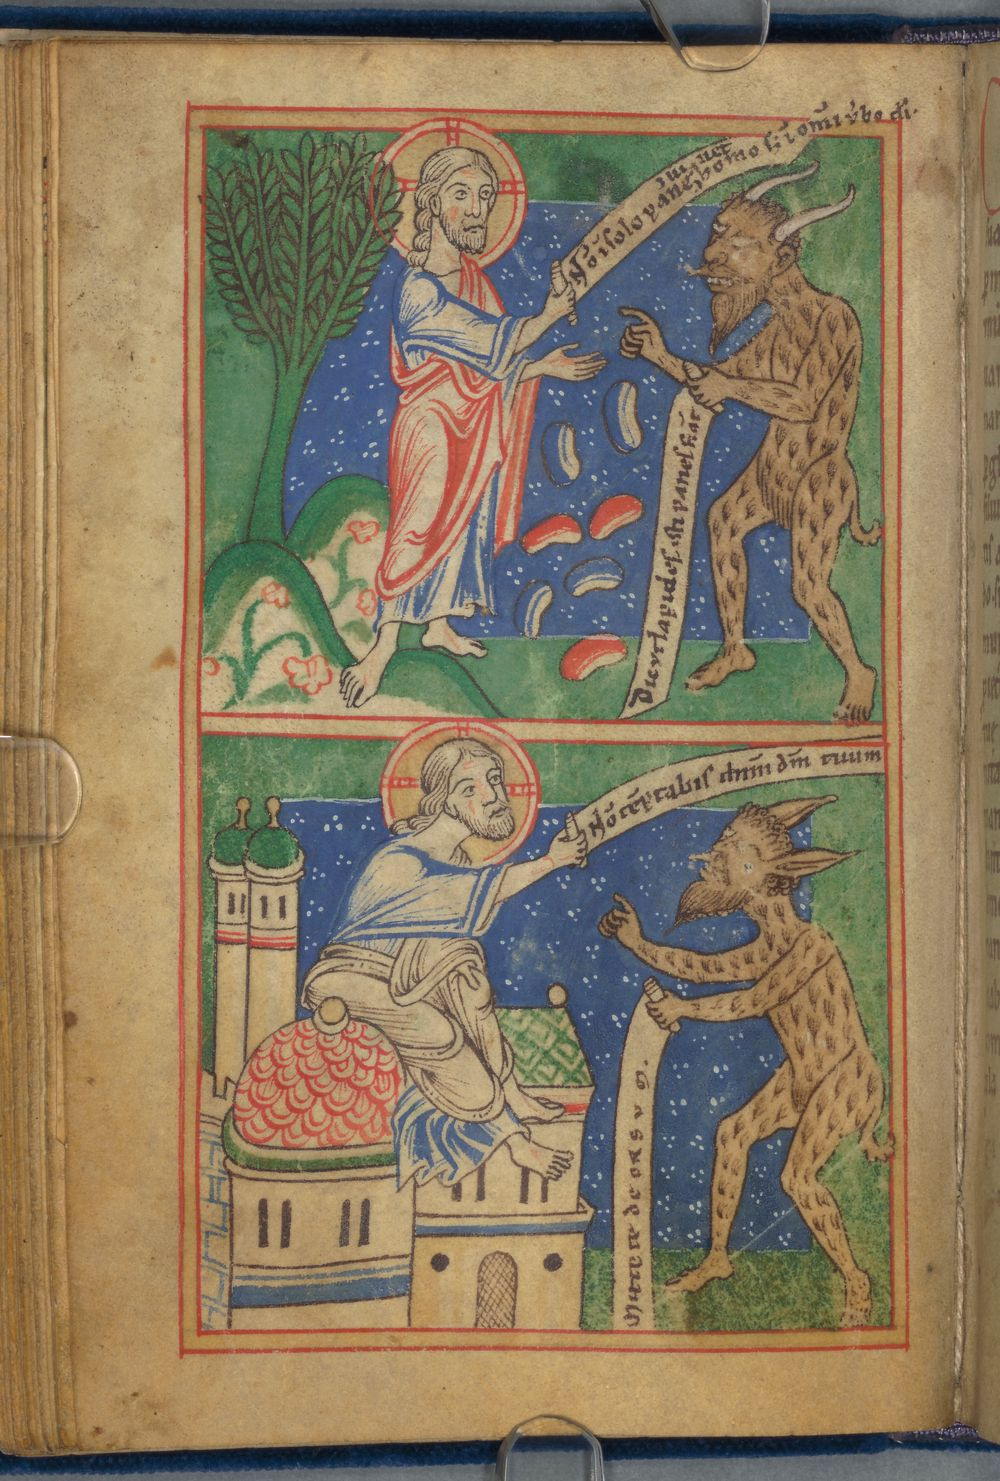 Nō ī solo pane uiuet
homo sꝫ ī om̄i ūbo dī.
Dic ut lapides isti panes fiāt
Nō tēptabis dnm̄ dm̄ tuum
Mitte te deorsum